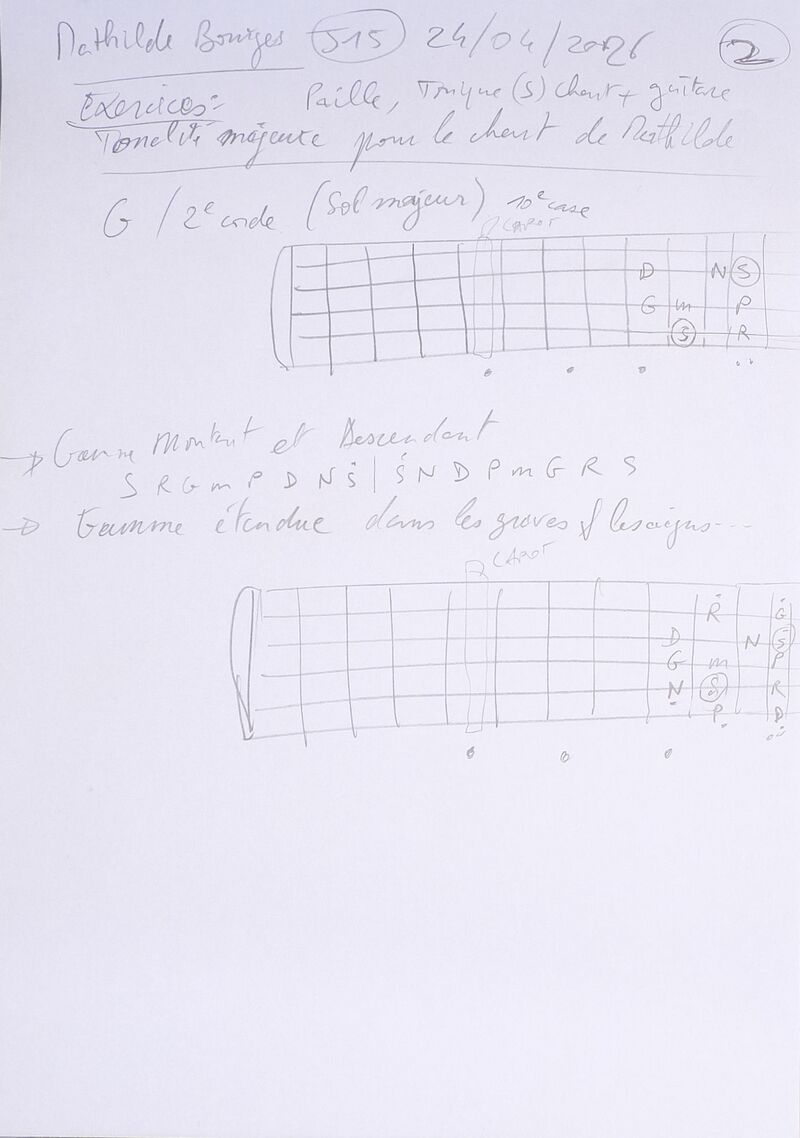 Mathilde Bourges 515 24/04/2026 2
Exercices: Paille, Tonique (S) chant + guitare
Tonalité majeure pour le chant de Mathilde
G / 2e corde (Sol majeur) 10e case
CAPOT
D N S
G m P
S R
→ Gamme Montant et Descendant
S R G m P D N Ṡ | Ṡ N D P m G R S
→ Gamme étendue dans les graves & les aigus...
CAPOT
Ṙ Ġ
D N Ṡ
G m P
Ṇ S R
P̣ Ḍ